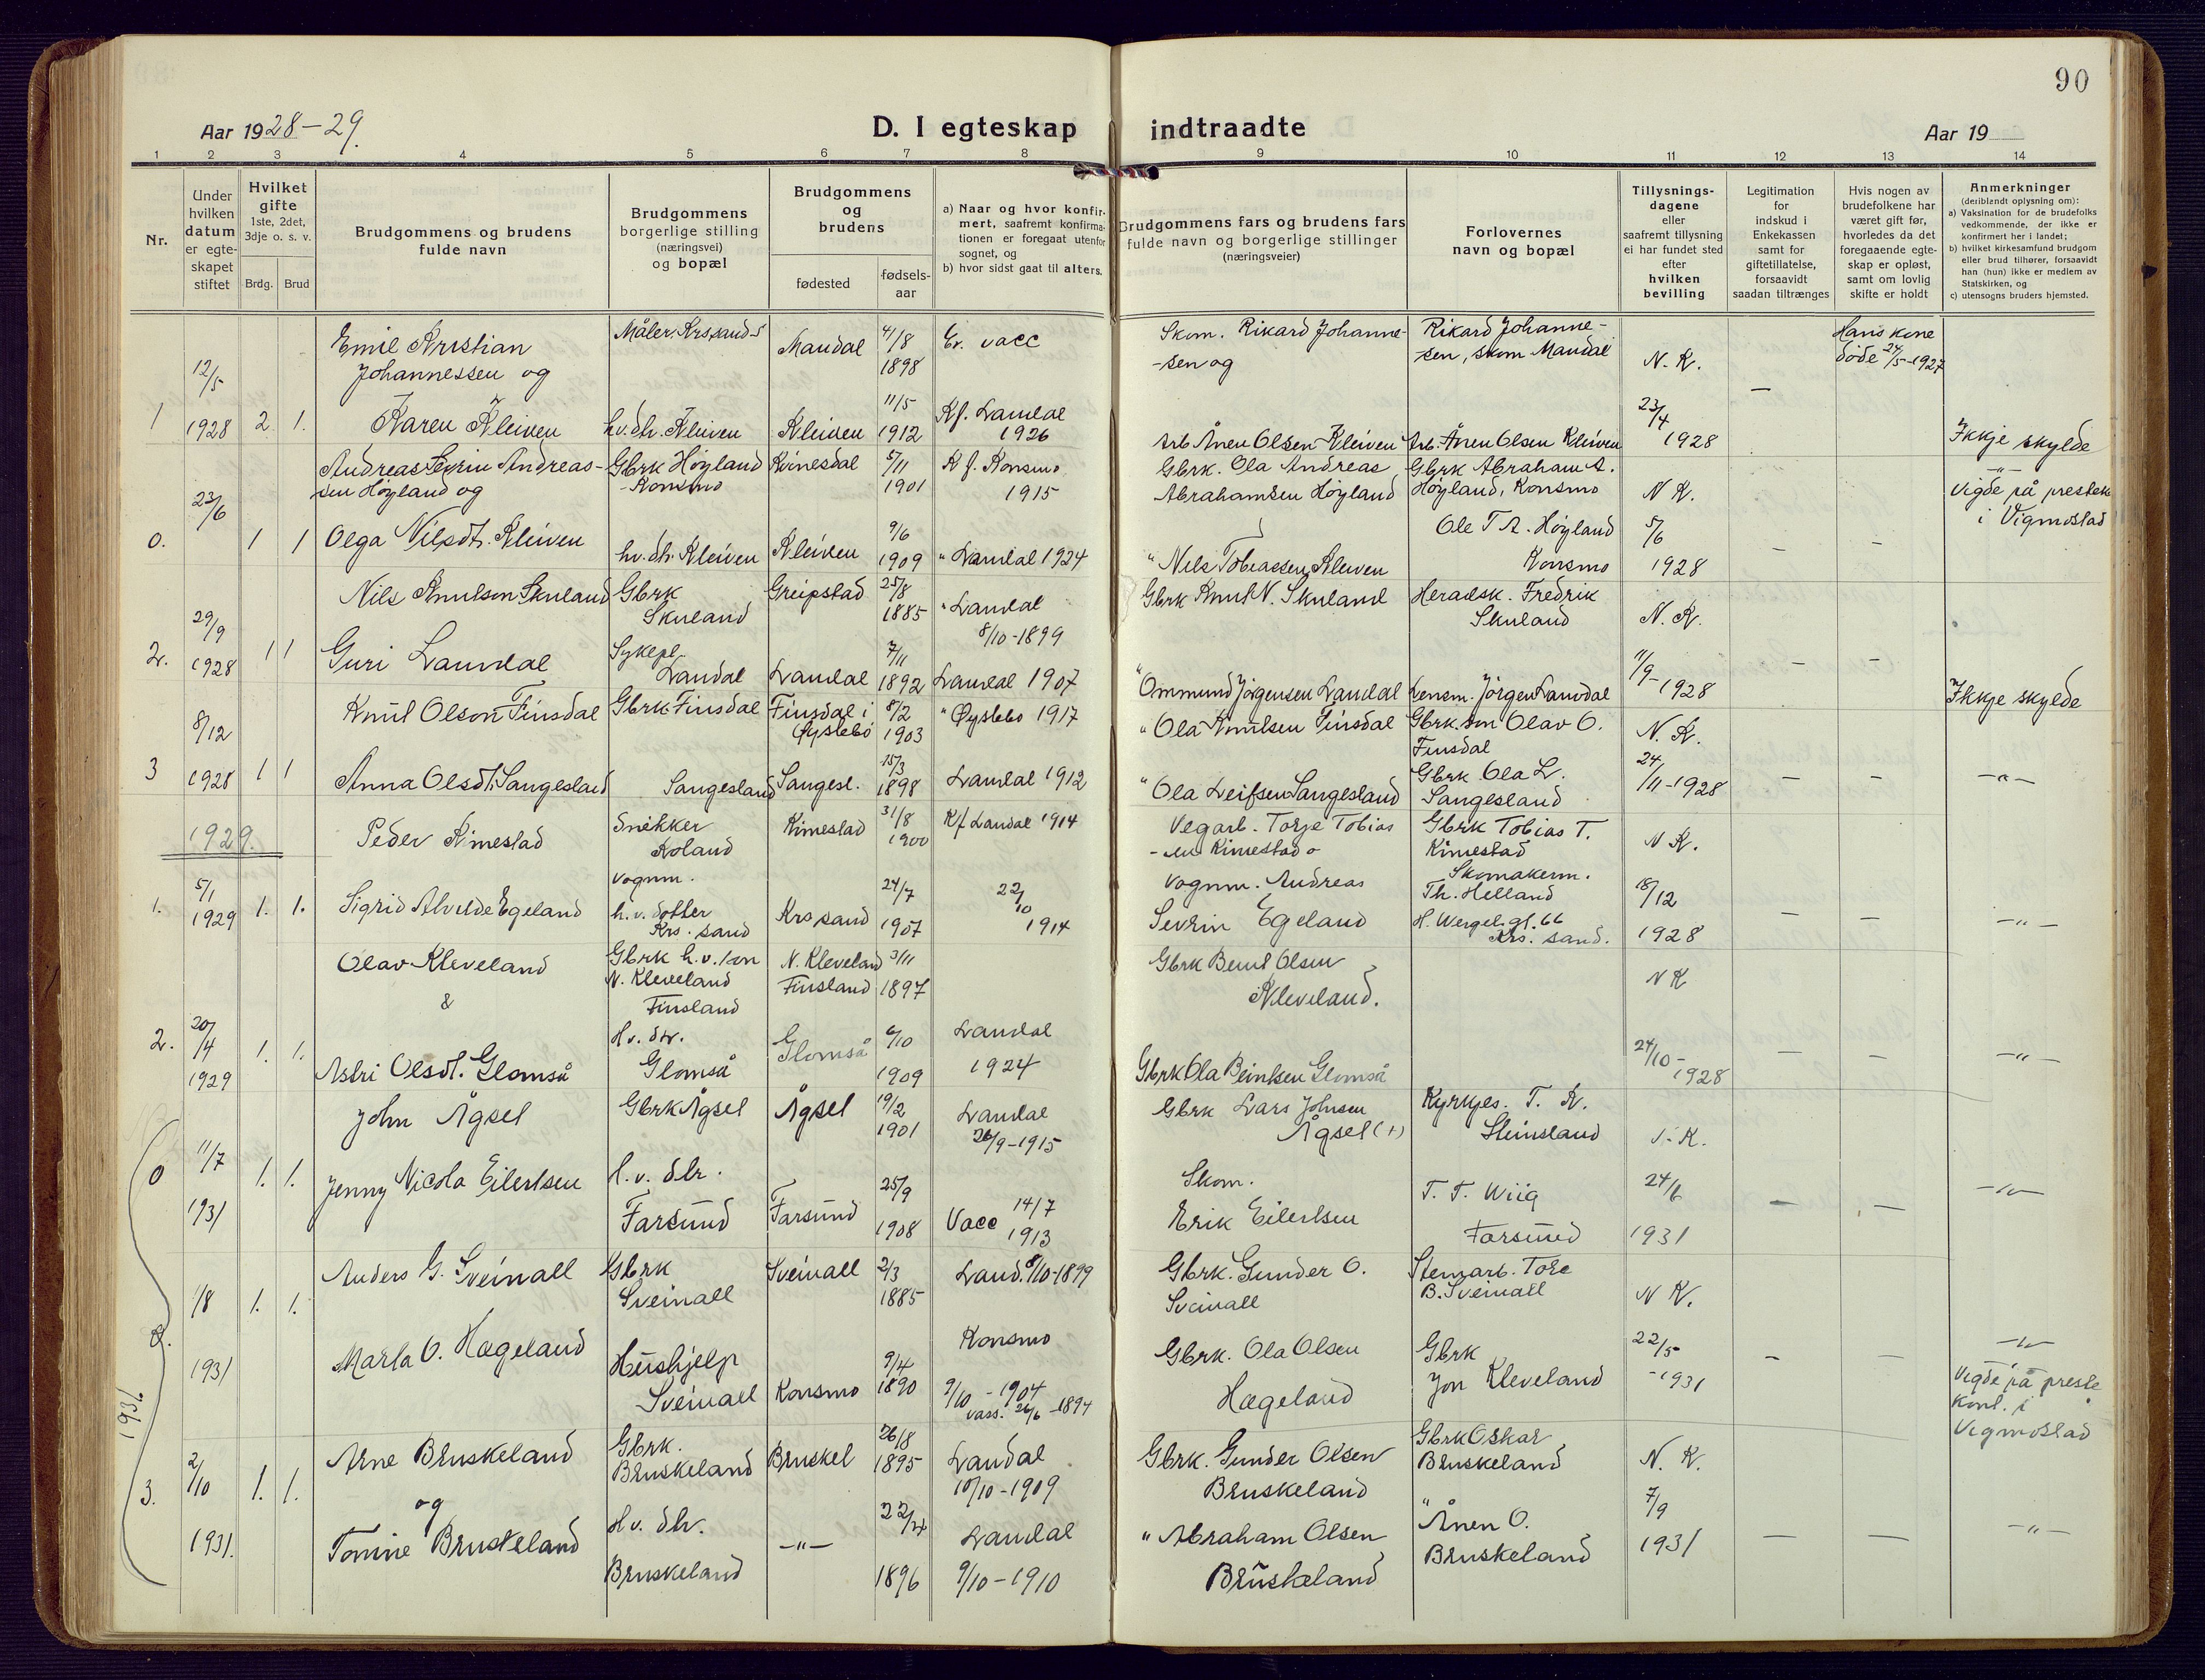 90
Aar 1928-29.
D. I egteskap indtraadte
Aar 19
1 2 3 4 5 6 7 8 9 10 11 12 13 14
Nr.
Under hvilken datum er egteskapet stiftet
Hvilket gifte
1ste, 2det, 3dje o. s. v.
Brdg. Brud
Brudgommens og brudens fulde navn
Brudgommens borgerlige stilling
(næringsvei)
og bopæl
Brudgommens og brudens
fødested
fødselsaar
a) Naar og hvor konfirmert, saafremt konfirmationen er foregaat utenfor sognet, og
b) hvor sidst gaat til alters.
Brudgommens fars og brudens fars
fulde navn og borgerlige stillinger
(næringsveier)
Forlovernes
navn og bopæl
Tillysningsdagene
eller
saafremt tillysning
ei har fundet sted
efter
hvilken
bevilling
Legitimation
for
indskud i
Enkekassen
samt for
giftetillatelse,
forsaavidt
saadan tiltrænges
Hvis nogen av
brudefolkene har
været gift før,
hvorledes da det
foregaaende egteskap er opløst,
samt om lovlig
skifte er holdt
Anmerkninger
(deriblandt oplysning om):
a) Vaksination for de brudefolks vedkommende, der ikke er konfirmert her i landet;
b) hvilket kirkesamfund brudgom eller brud tilhører, forsaavidt han (hun) ikke er medlem av Statskirken, og
c) utensogns bruders hjemsted.
1 12/5 1928 2. 1.
Emil Kristian Johannessen og
Måler, Krssand S
Mandal
1898
Ev. vacc
Skom. Rikard Johanne-
-sen og
Rikard Johanne-
sen, skom Mandal
N. K.
Hans kone
døde 24/5-1927
Karen Kleiven
hv. dtr. Kleiven
Kleiven
11/5 1912
Kf. Laudal 1926
Arb Ånen Olsen Kleiven
Arb. Ånen Olsen Kleiven
23/4 1928
Ikkje skylde
0. 23/6 1 1
Andreas Severin Andreas-
sen Høyland og
Gbrk Høyland
-Konsmo
Kvinesdal
5/11 1901
Kf. Konsmo 1915
Gbrk. Ola Andreas
Abrahamsen Høyland
Gbrk Abraham A.
Høyland, Konsmo
N K.
-"-
Vigde på prestek
i Vigmostad
Olga Nilsdt. Kleiven
hv. dtr. Kleiven
Kleiven
9/6 1909
" Laudal 1924
" Nils Tobiassen Kleiven
Ole T A. Høyland
Konsmo
5/6 1928
2. 29/9 1928 1 1
Nils Knutson Skuland
Gbrk Skuland
Greipstad
25/8 1885
" Laudal 8/10-1899
Gbrk Knut N. Skuland
Heradsk. Fredrik
Skuland
N. K.
Guri Laudal
Sykepl. Laudal
Laudal
7/11 1892
Laudal 1907
" Ommund Jørgensen Laudal
Lensm. Jørgen Laudal
11/9-1928
Ikkje skylde
3 8/12 1928 1 1
Knut Olson Finsdal
Gbrk Finsdal
Finsdal i Øyslebø
8/2 1903
" Øyslebø 1917
" Ola Knutsen Finsdal
Gbrk. son Olav O.
Finsdal
N. K.
Anna Olsdt. Sangesland
Sangesland
Sangesl.
15/3 1898
Laudal 1912
" Ola Leifsen Sangesland
Gbrk Ola L.
Sangesland
24/11-1928
-"-
1929.
1. 5/1 1929 1. 1.
Peder Kimestad
Snikker
Koland
Kimestad
31/8 1900
Kf Laudal 1914
Vegarb. Torje Tobias
-sen Kimestad o
Gbrk Tobias T.
Kimestad
N K.
Sigrid Alvilde Egeland
Vognm.
h. v. dotter
Krs. sand
Krssand
24/7 1907
22/10 1914
Vognm. Andreas
Severin Egeland
Skomakerm.
Th. Helland
H. Wergel. gt. 66
Krs. sand.
18/12 1928
-"-
2. 20/4 1929 1. 1.
Olav Kleveland
&
Gbrk h. v. son
N. Kleveland
Finsland
N. Kleveland
Finsland
3/11 1897
Gbrk Bernt Olsen
Kleveland.
N K
Astri Olsdt. Glomså
Hv. dtr.
Glomså
Glomså
6/10 1909
Laudal 1924
Gbrk Ola Beintsen Glomså
24/10-1928
-"-
0 11/7 1931 1. 1.
John Ågsel
Gbrk Ågsel
Ågsel
19/2 1901
Laudal 26/9-1915
Gbrk Lars Johnsen
Ågsel (+)
Kyrkjes. T. K.
Steinsland
Jenny Nicola Eilertsen
h. v. dtr.
Farsund
Farsund
25/9 1908
Vacc 14/7 1913
Skom.
Erik Eilertsen
T. T. Wiig
Farsund
24/6 1931
-"-
1/8 1931 1. 1.
Anders G. Sveinall
Gbrk
Sveinall
Sveinall
2/3 1885
Laud. 8/10-1899
Gbrk. Gunder O.
Sveinall
Stenarb. Tore
B. Sveinall
N K.
Marta O. Hægeland
Hushjelp
Sveinall
Konsmo
9/4 1890
Konsmo
9/10-1904
vacc. 26/6-1894
Gbrk. Ola Olsen
Hægeland
Gbrk
Jon Kleveland
22/5-1931
-"-
Vigde på preste
kont. i
Vigmostad
1931
3. 2/10 1931. 1. 1.
Arne Bruskeland
og
Gbrk.
Bruskeland
Bruskel
26/8 1895
Laudal
10/10-1909
Gbrk. Gunder Olsen
Bruskeland
Gbrk Oskar
Bruskeland
N. K.
Tomine Bruskeland
Hv. dtr.
Bruskeland
-"-
1896
Laudal
9/10-1910
" Abraham Olsen
Bruskeland
" Ånen O.
Bruskeland
7/9 1931
-"-